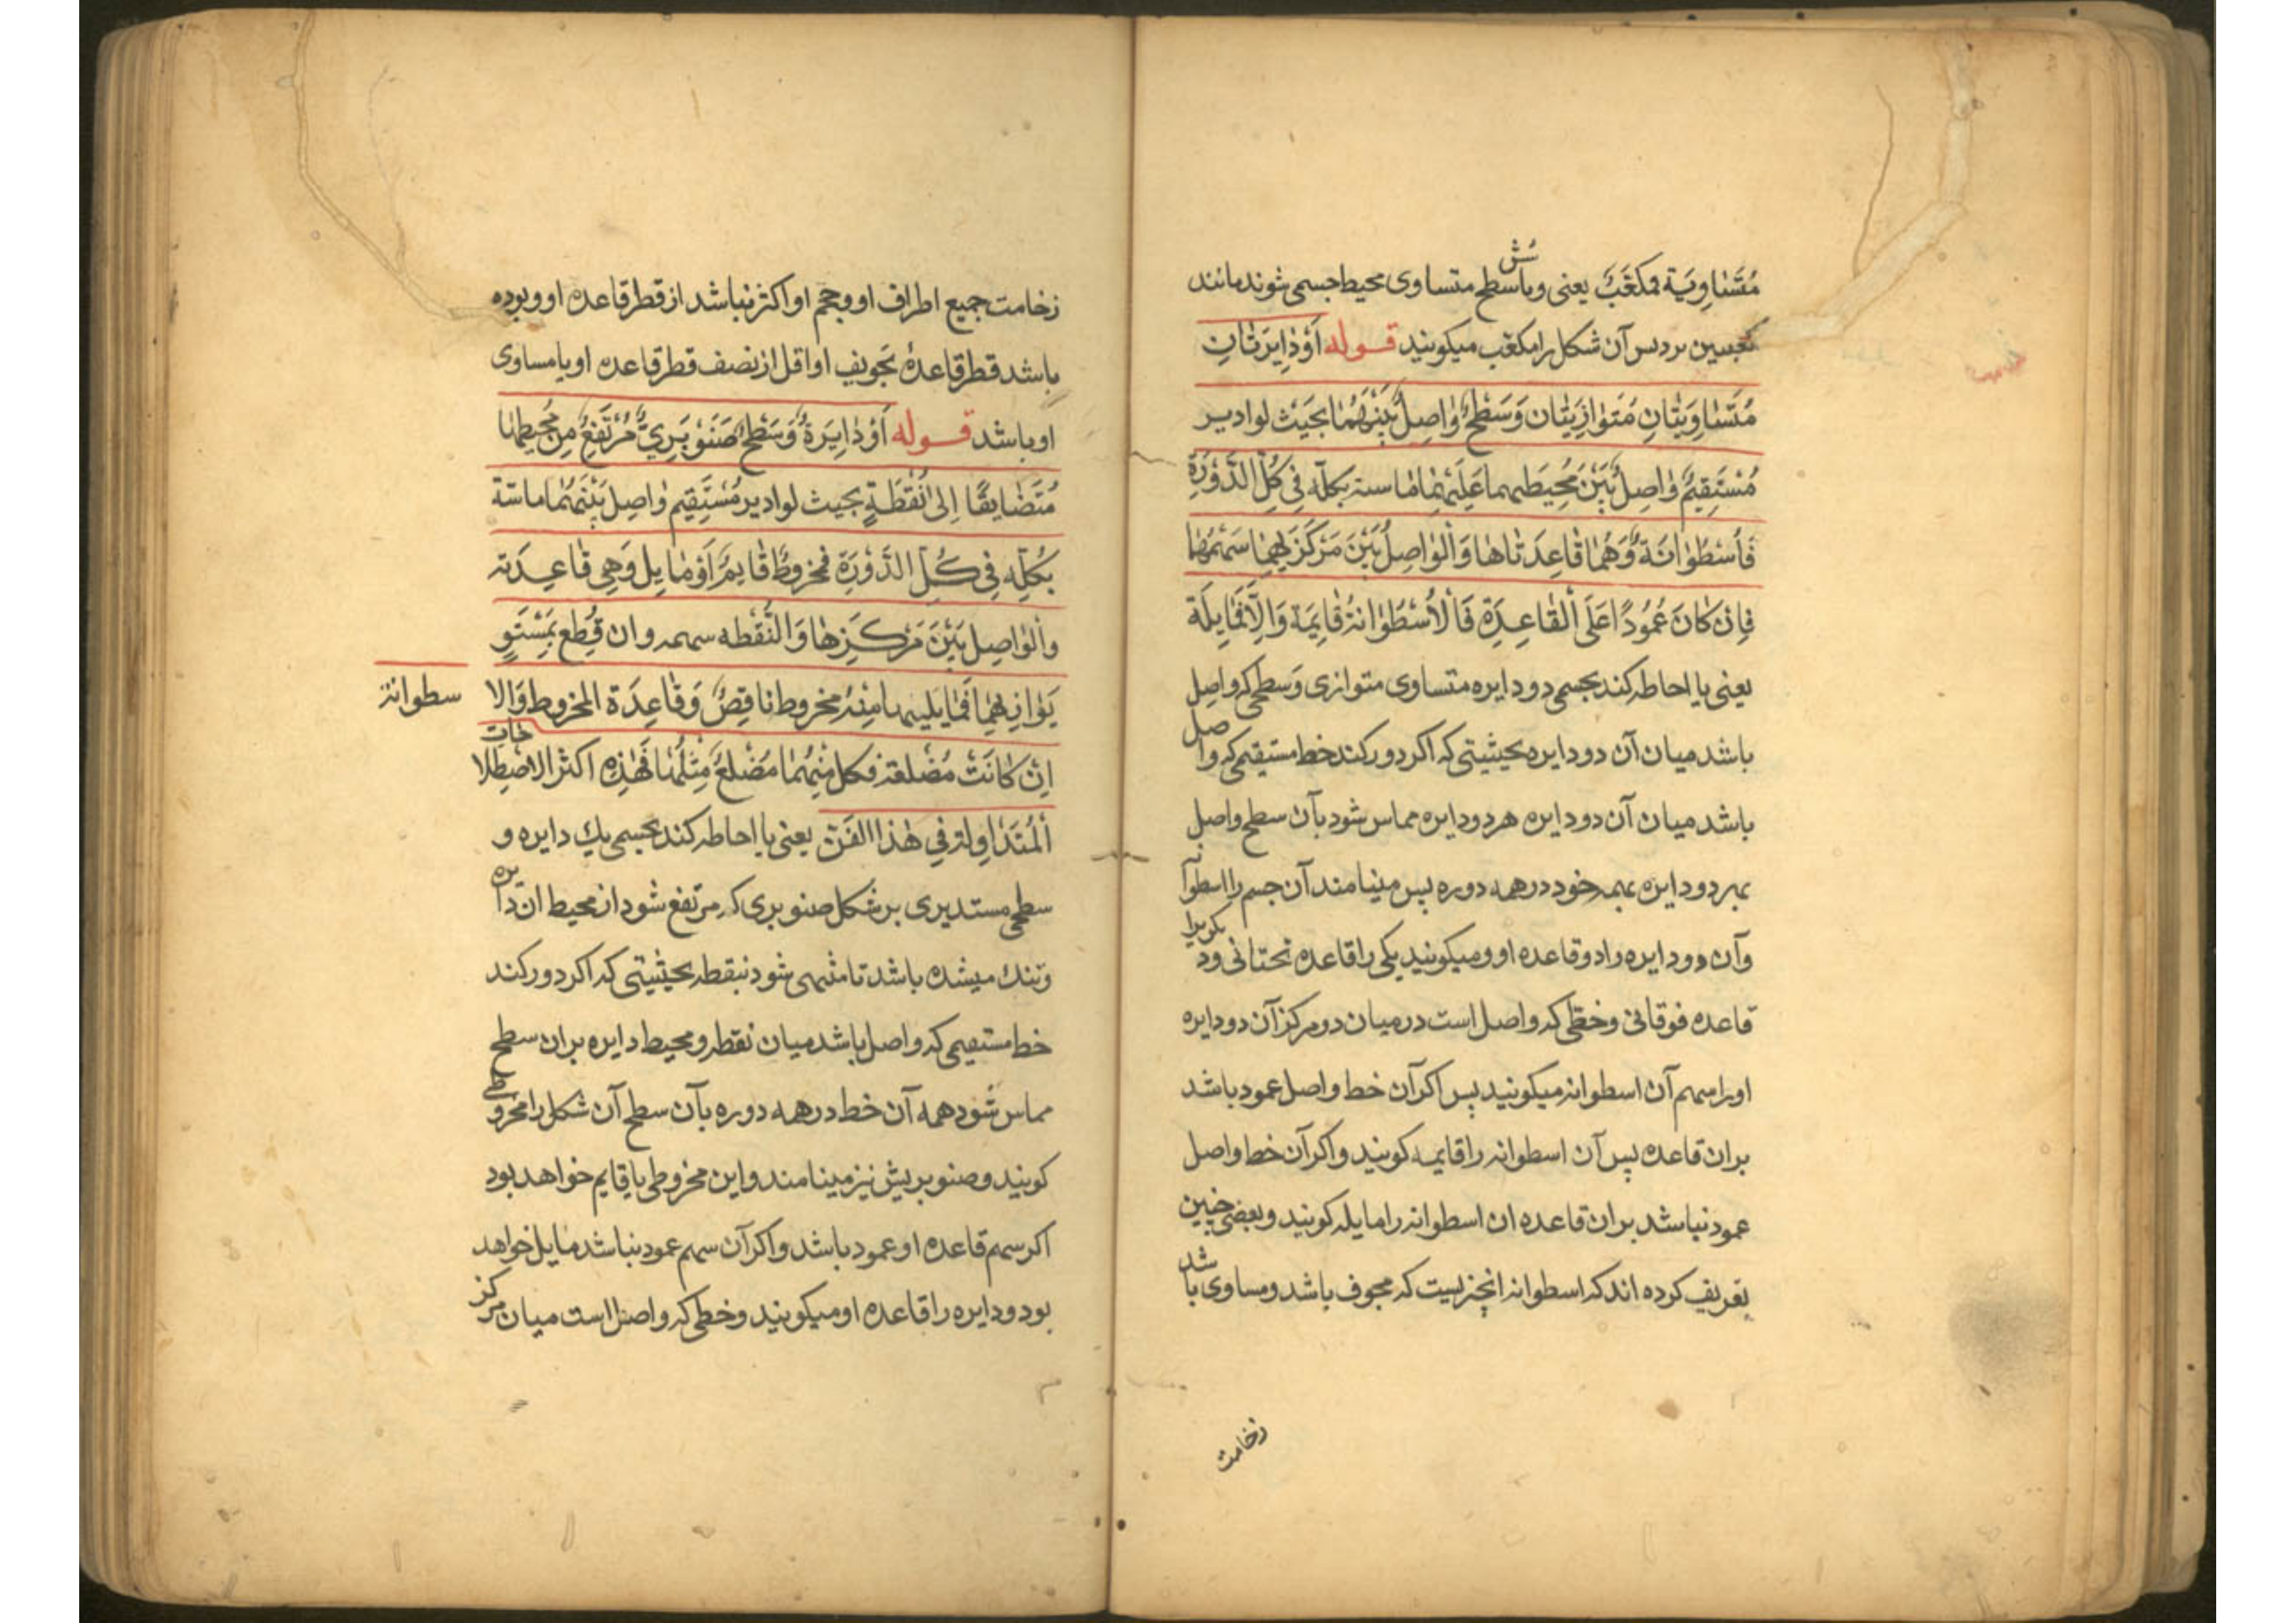 متساویة فمکعب یعنی وبا شش سطح متساوی محیط جسمی شوند مانند
کعبین نرد پس آن شکل را مکعب میکویند قوله اَوْ دٰایِرَتٰانِ
مُتَسٰاوِیَتٰانِ مُتَوٰازِیَتٰان وَسَطْحٌ وٰاصِلٌ بَیْنَهُمٰا بحَیْث لو ادیر
مُسْتَقِیمٌ وٰاصِلٌ بَیْنَ مُحِیطَیهما عَلَیْهِمٰا مٰاسه بکلّه فِی کُلِّ الدَّوْرَةِ
فَاُسْطُوٰانَةٌ وَهُمٰا قٰاعِدَتٰاهٰا وَالْوٰاصِلُ بَیْنَ مَرْکَزَیْهِمٰا سَهْمُهٰا
فَاِنْ کٰانَ عَمُودًا عَلَی الْقٰاعِدَةِ فَالْاُسْطُوٰانَةُ قٰایِمَة وَاِلّٰا فَمٰایِلَة
یعنی یا احاطه کند بجسمی دو دایره متساوی متوازی وسطحی که واصل
باشد میان آن دو دایره بحیثیتی که اکر دور کند خط مستقیمی که واصل
باشد میان آن دو دایره هر دو دایره مماس شود بآن سطح واصل
بهر دو دایره بهمه خود در همه دوره پس مینامند آن جسم را اسطوانه
وآن دو دایره را دو قاعده او ومیکویند یکی را قاعده تحتانی ودیکریرا
قاعده فوقانی وخطی که واصل است در میان دو مرکز آن دو دایره
اورا سهم آن اسطوانه میکویند پس اکر آن خط واصل عمود باشد
بران قاعده پس آن اسطوانه را قایمه کویند واکر آن خط واصل
عمود نباشد بران قاعده ان اسطوانه را مایله کویند وبعضی چنین
تعریف کرده اند که اسطوانه انچیزیست که مجوف باشد ومساوی باشد
زخامت
زخامت جمیع اطراف او وحجم او اکثر نباشد از قطر قاعده او وبوده
باشد قطر قاعدهٔ تجویف او اقل از نصف قطر قاعده او یا مساوی
او باشد قوله اَوْ دٰایِرَةٌ وَسَطْحٌ صَنَوْبَرِیٌّ مُرْتَفِعٌ مِنْ مُحِیطِهٰا
مُتَضٰایِقًا اِلیٰ نُقْطَةٍ بحیث لو ادیر مُسْتَقِیم وٰاصِل بَیْنَهُمٰا ماسّة
بکُلِّه فِی کُلِّ الدَّوْرَةِ فمخروطٌ قٰایِمٌ اَوْ مٰایِل وَهِی قٰاعِدَته
وَالْوٰاصِل بَیْنَ مَرْکَزِهٰا وَالنُّقْطه سهمه وان قُطِع بمُسْتَوٍ
یُوٰازِیهٰا فَمٰا یَلیها مِنْهُ مخروط ناقِصٌ وَقٰاعِدَة المخروط وَالا
سطوانة
اِنْ کٰانَتْ مُضَلعَة فکل مِنْهُمٰا مُضَلعٌ مِثْلُهٰا فَهٰذِه اکثر الاصْطِلاحٰات
اَلْمُتَدٰاوِلة فِی هٰذَا الفَنّ یعنی یا احاطه کند بجسمی یک دایره و
سطحی مستدیری بر شکل صنوبری که مرتفع شود از محیط ان دایره
وتنک میشده باشد تا منتهی شود بنقطه بحیثیتی که اکر دور کند
خط مستقیمی که واصل باشد میان نقطه ومحیط دایره بران سطح
مماس شود همه آن خط در همه دوره بآن سطح آن شکل را مخروطی
کویند وصنوبریش نیز مینامند واین مخروطی یا قایم خواهد بود
اکر سهم قاعده او عمود باشد واکر آن سهم عمود نباشد مایل خواهد
بود ودایره را قاعده او میکویند وخطی که واصل است میان مرکز